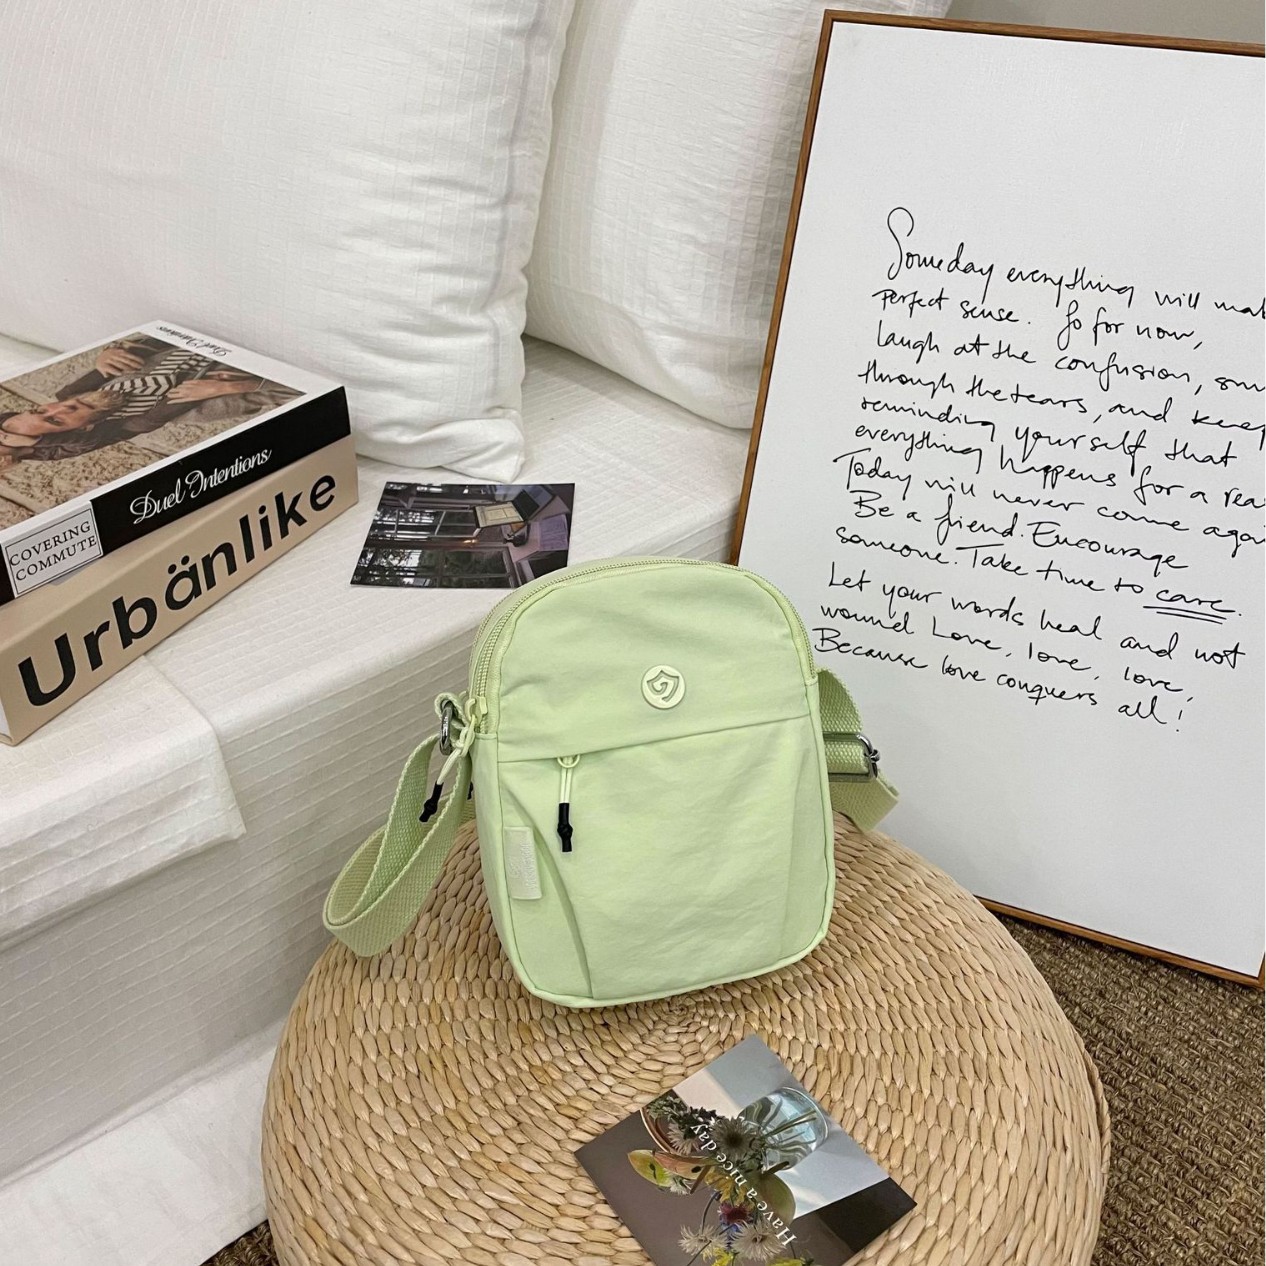 Duel Intentions
COVERING
COMMUTE
Urbänlike
Someday everything will mak
perfect sense. So for now,
laugh at the confusion, smi
through the tears, and keep
reminding yourself that
everything happens for a rea
Today will never come again
Be a friend. Encourage
someone. Take time to care.
Let your words heal and not
wound Love, love, love,
Because love conquers all!
Have a nice day